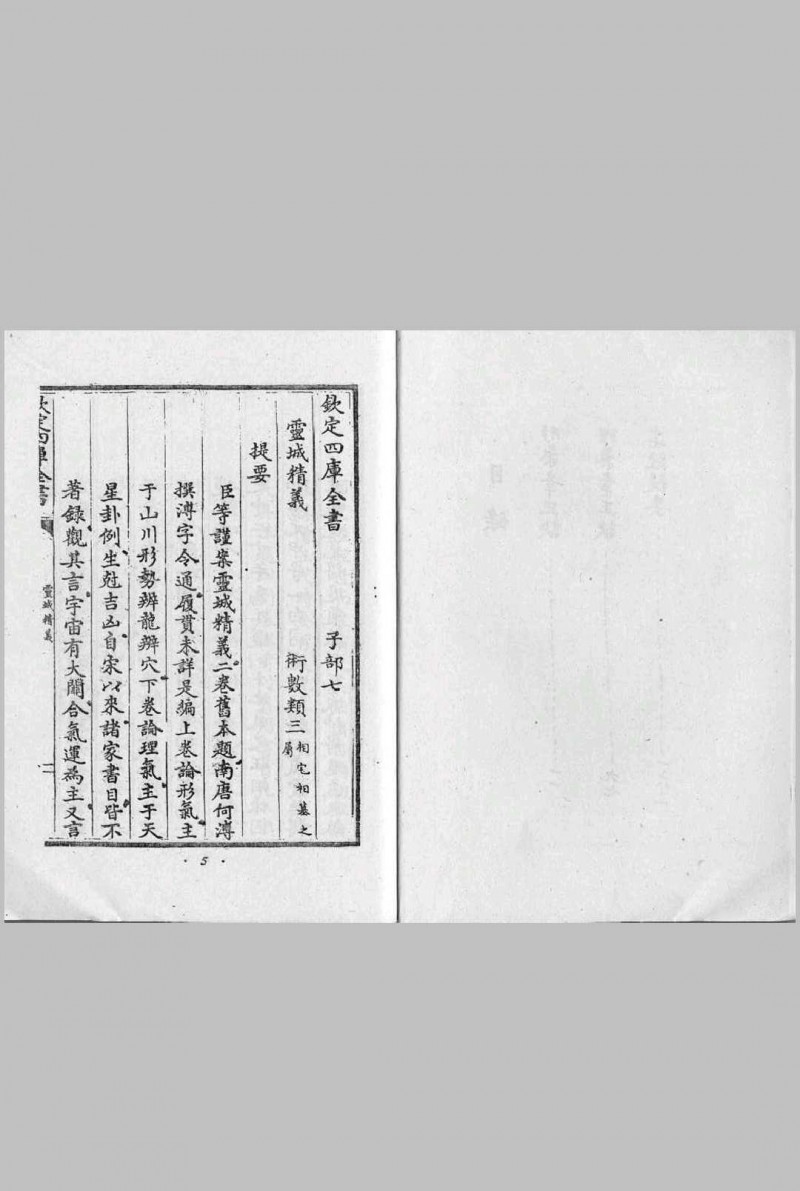 欽定四庫全書 子部七
靈城精義 術數類三 相宅相墓之屬
提要
臣等謹案靈城精義二卷舊本題南唐何溥
撰溥字令通履貫未詳是編上卷論形氣主
于山川形勢辨龍辨穴下卷論理氣主于天
星卦例生尅吉凶自宋以來諸家書目皆不
著錄觀其言宇宙有大關合氣運為主又言
欽定四庫全書
靈城精義
· 5 ·